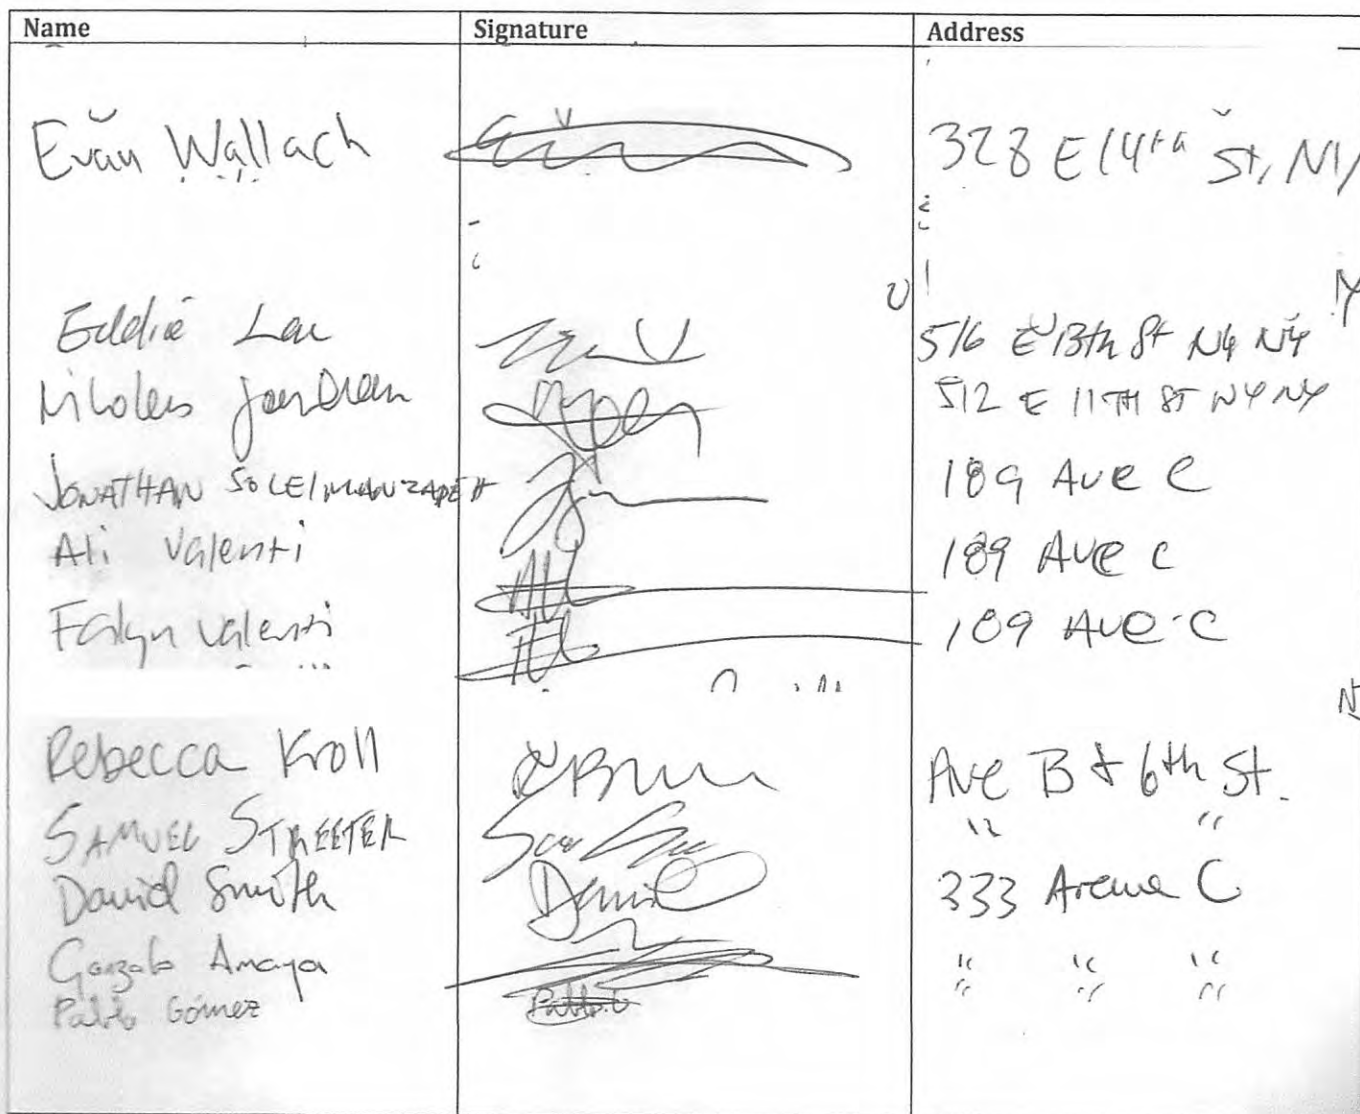 Name Signature Address
Evan Wallach 328 E 14th St, NY
Eddie Lau 516 E 13th St NY NY
Nikolas 512 E 11TH ST NY NY
JONATHAN SOLEIMANZADEH 189 Ave C
Ali Valenti 189 Ave C
Falyn Valenti 189 Ave C
Rebecca Kroll Ave B & 6th St.
SAMUEL STREETER " "
David Smith David 333 Avenue C
Gonzalo Amaya " " "
Pablo Gómez Pablo G " " "